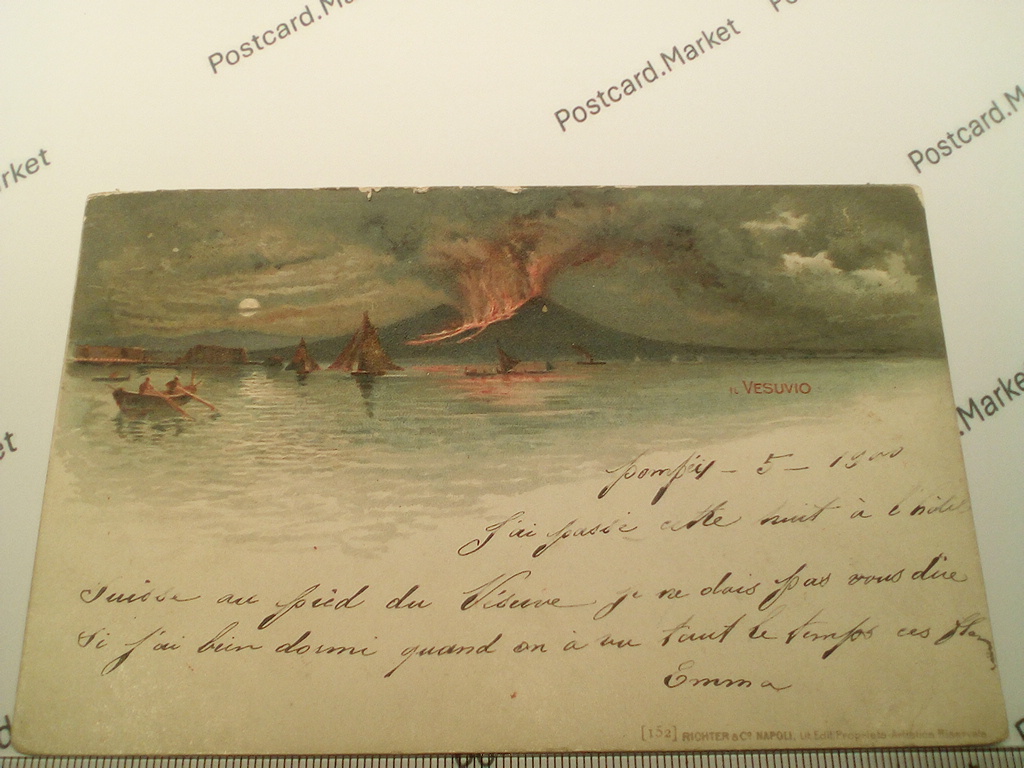 Postcard.Market
Postcard.Market
Postcard.Market
IL VESUVIO
Pompéi - 5 - 1900
J'ai passé cette nuit à l'hôtel
Suisse au pied du Vésuve je ne dois pas vous dire
Si j'ai bien dormi quand on à vu tout le temps ces
Emma
[152] RICHTER & Co NAPOLI, Lit. Edit. Proprietà Artistica Riservata